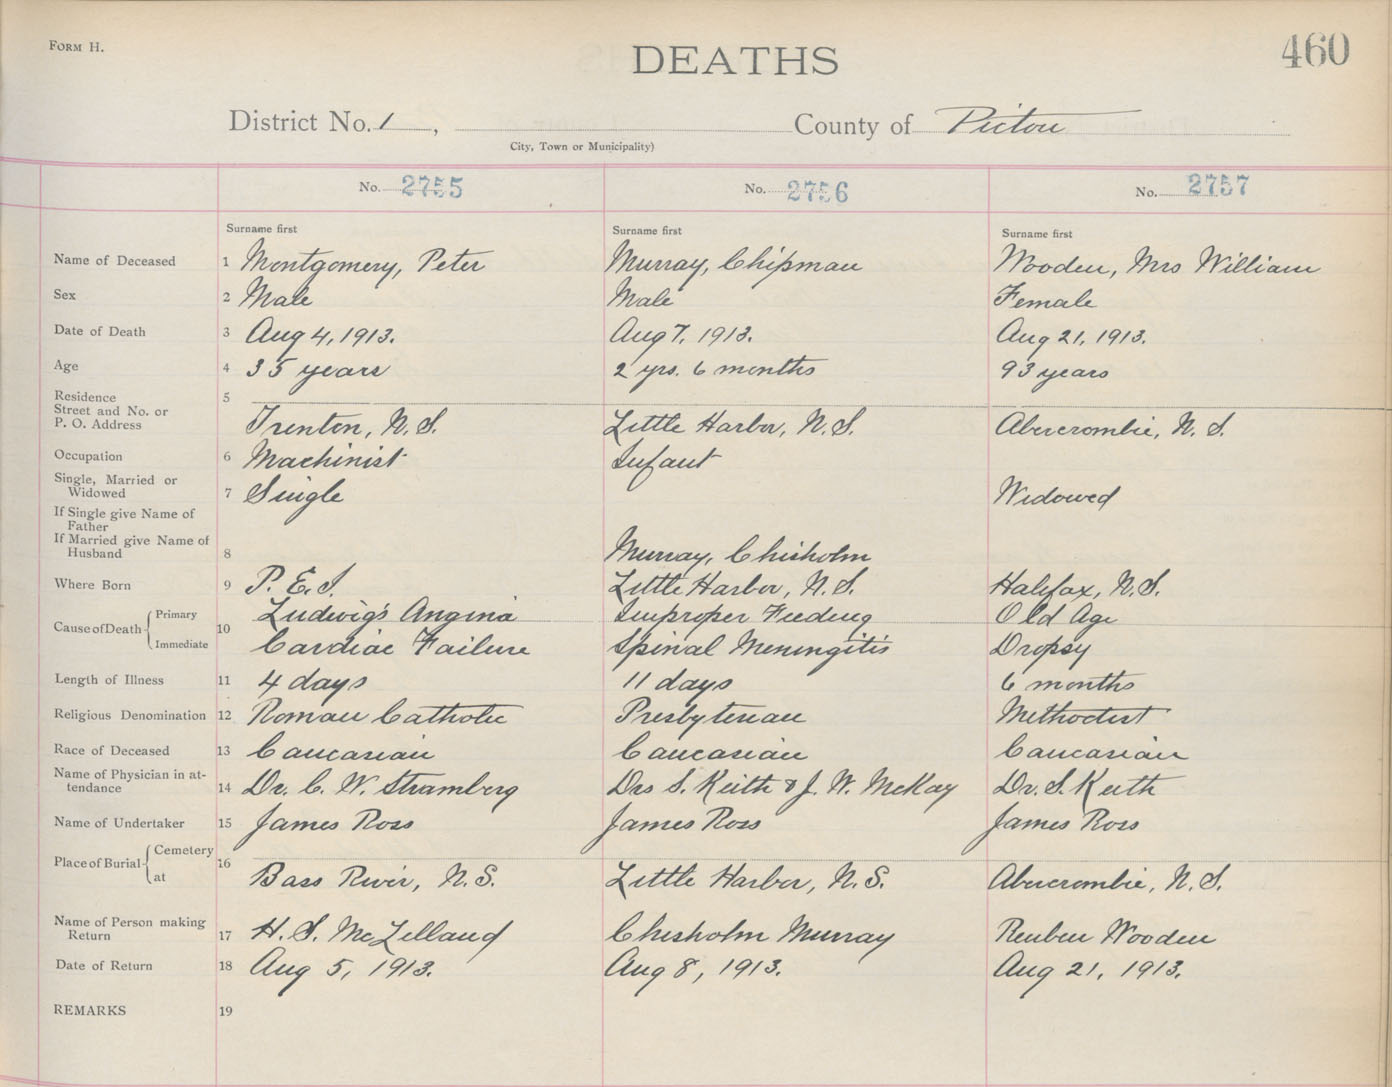 FORM H.
DEATHS
460
District No. 1, County of Pictou
City, Town or Municipality)
No. 2755 No. 2756 No. 2757
Surname first Surname first Surname first
Name of Deceased 1 Montgomery, Peter Murray, Chipman Wooden, Mrs William
Sex 2 Male Male Female
Date of Death 3 Aug 4, 1913. Aug 7, 1913. Aug 21, 1913.
Age 4 35 years 2 yrs. 6 months 93 years
Residence 5
Street and No. or
P. O. Address Trenton, N.S. Little Harbor, N.S. Abercrombie, N.S.
Occupation 6 Machinist Infant
Single, Married or
Widowed 7 Single Widowed
If Single give Name of
Father
If Married give Name of
Husband 8 Murray, Chisholm
Where Born 9 P.E.I. Little Harbor, N.S. Halifax, N.S.
Cause of Death 10 Primary Ludwig's Angina Improper Feeding Old Age
Immediate Cardiac Failure Spinal Meningitis Dropsy
Length of Illness 11 4 days 11 days 6 months
Religious Denomination 12 Roman Catholic Presbyterian Methodist
Race of Deceased 13 Caucasian Caucasian Caucasian
Name of Physician in at-
tendance 14 Dr. C. W. Stramberg Drs S. Keith & J. W. McKay Dr. S. Keith
Name of Undertaker 15 James Ross James Ross James Ross
Place of Burial 16 Cemetery
at Bass River, N.S. Little Harbor, N.S. Abercrombie, N.S.
Name of Person making
Return 17 H. S. McLelland Chesholm Murray Reuben Wooden
Date of Return 18 Aug 5, 1913. Aug 8, 1913. Aug 21, 1913.
REMARKS 19